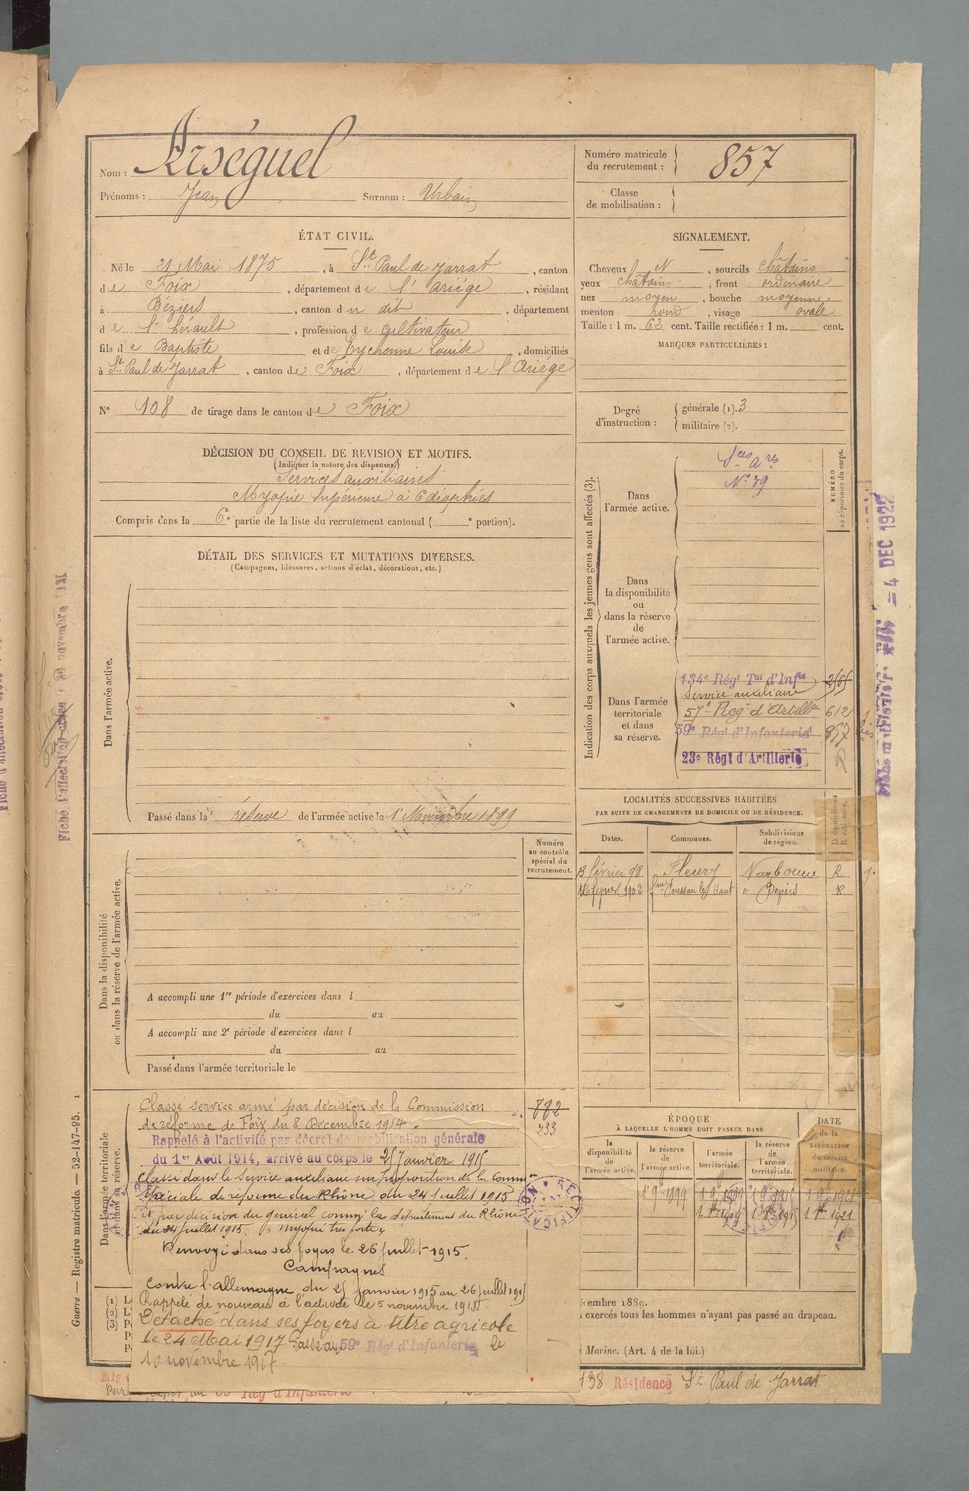 Nom : Arséguel
Prénoms : Jean Surnom : Urbain
Numéro matricule du recrutement : 857
Classe de mobilisation :
ÉTAT CIVIL.
Né le 21 Mai 1875, à St Paul de Jarrat, canton
de Foix, département de l'Ariège, résidant
à Béziers, canton du dit, département
de l'hérault, profession de cultivateur
fils de Baptiste et de Eychenne Louise, domiciliés
à St Paul de Jarrat, canton de Foix, département de l'Ariège
N° 108 de tirage dans le canton de Foix
SIGNALEMENT.
Cheveux N, sourcils châtains
yeux châtains, front ordinaire
nez moyen, bouche moyenne
menton rond, visage ovale
Taille : 1 m. 62 cent. Taille rectifiée : 1 m. cent.
MARQUES PARTICULIÈRES :
Degré d'instruction : générale (1). 3
militaire (2).
DÉCISION DU CONSEIL DE REVISION ET MOTIFS.
(Indiquer la nature des dispenses)
Services auxiliaires
Myopie Supérieure à 6 dioptries
Compris dans la 6e partie de la liste du recrutement cantonal ( e portion).
DÉTAIL DES SERVICES ET MUTATIONS DIVERSES.
(Campagnes, blessures, actions d'éclat, décorations, etc.)
Dans l'armée active.
Passé dans la réserve de l'armée active le 1er Novembre 1899
Indication des corps auxquels les jeunes gens sont affectés (3).
NUMÉRO au répertoire du corps.
Dans l'armée active.
N° 39
Dans la disponibilité ou dans la réserve de l'armée active.
Dans l'armée territoriale et dans sa réserve.
134e Régt Tal d'Infie
Service auxiliaire
57e Reg d'Artillie 612
59e Régt d'Infanterie 857
23e Régt d'Artillerie R
LOCALITÉS SUCCESSIVES HABITÉES
PAR SUITE DE CHANGEMENTS DE DOMICILE OU DE RÉSIDENCE.
Dates. Communes. Subdivisions de région.
février 98 Fleury Narbonne R
1902 Haut Béziers R
Numéro au contrôle spécial du recrutement.
Dans la disponibilité ou dans la réserve de l'armée active.
A accompli une 1re période d'exercices dans l
du au
A accompli une 2e période d'exercices dans l
du au
Passé dans l'armée territoriale le
Dans l'armée territoriale et dans sa réserve.
Classé service armé par décision de la Commission 882
de réforme de Foix du 8 Décembre 1914. 733
Rappelé à l'activité par décret de mobilisation générale
du 1er Août 1914, arrivé au corps le 25 Janvier 1915
Classé dans le Service auxiliaire sur proposition de la Comm
Spéciale de réforme du Rhône du 24 Juillet 1915
et par décision du général comm' le département du Rhône
du 24 Juillet 1915. Myopie très forte
Renvoyé dans ses foyers le 26 juillet 1915.
Campagnes
Contre l'allemagne du 25 janvier 1915 au 26 juillet 1915
Rappelé de nouveau à l'activité le 5 novembre 1916
Détaché dans ses foyers à titre agricole
le 24 Mai 1917 Passé au 59e Régt d'Infanterie le
10 novembre 1917.
RECTIFICATION
ÉPOQUE
À LAQUELLE L'HOMME DOIT PASSER DANS
DATE de la LIBÉRATION du service militaire.
la disponibilité de l'armée active.
la réserve de l'armée active.
l'armée territoriale.
la réserve de l'armée territoriale.
embre 1889.
exercés tous les hommes n'ayant pas passé au drapeau.
Marine. (Art. 4 de la loi.)
138 Résidence St Paul de Jarrat
Guerre — Registre matricule. — 52-147-95. 1
= 4 DEC 1922